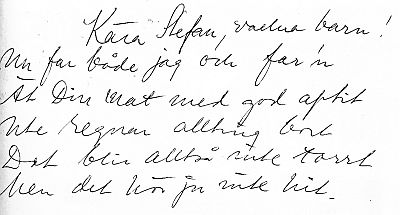 Kära Stefan, vackra barn!
Nu far både jag och far'n
Ät Din mat med god aptit
Ute regnar allting bort
Det blir alltså inte torrt
Men det hör ju inte hit.